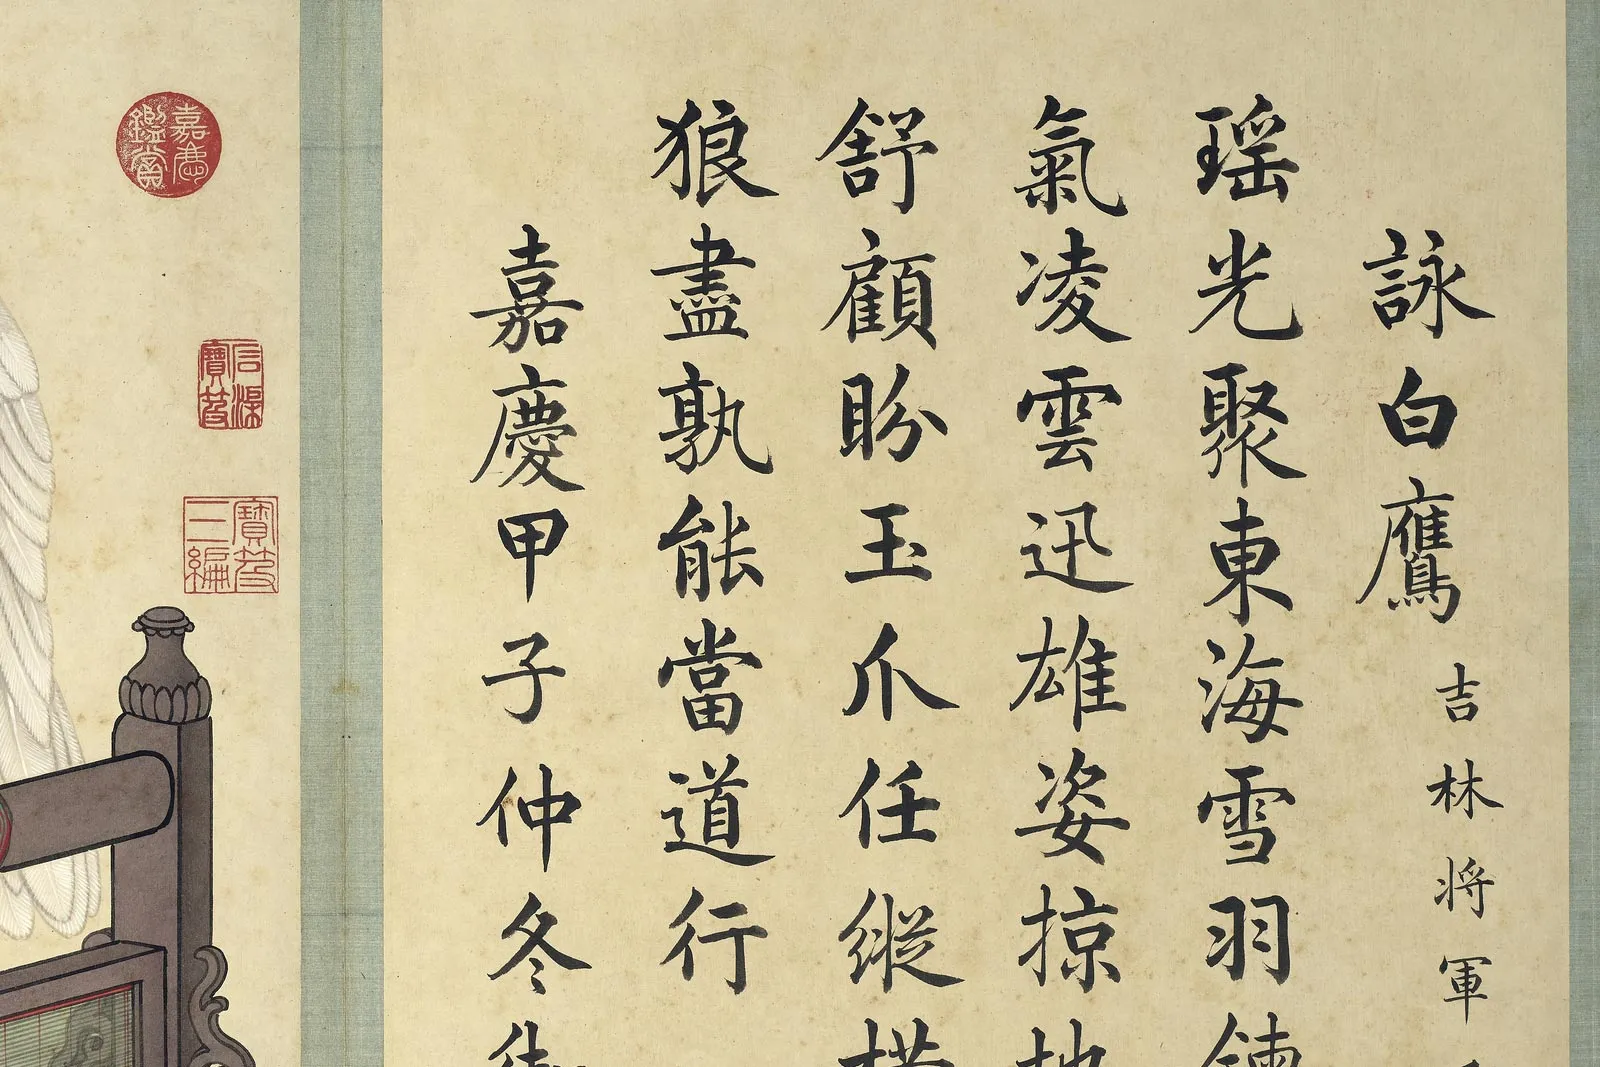 詠白鷹 吉林將軍
瑶光聚東海雪羽鍊
氣凌雲迅雄姿掠地
舒顧盼玉爪任縱橫
狼盡孰能當道行
嘉慶甲子仲冬御
嘉慶鑑賞
石渠寶笈
寶笈三編